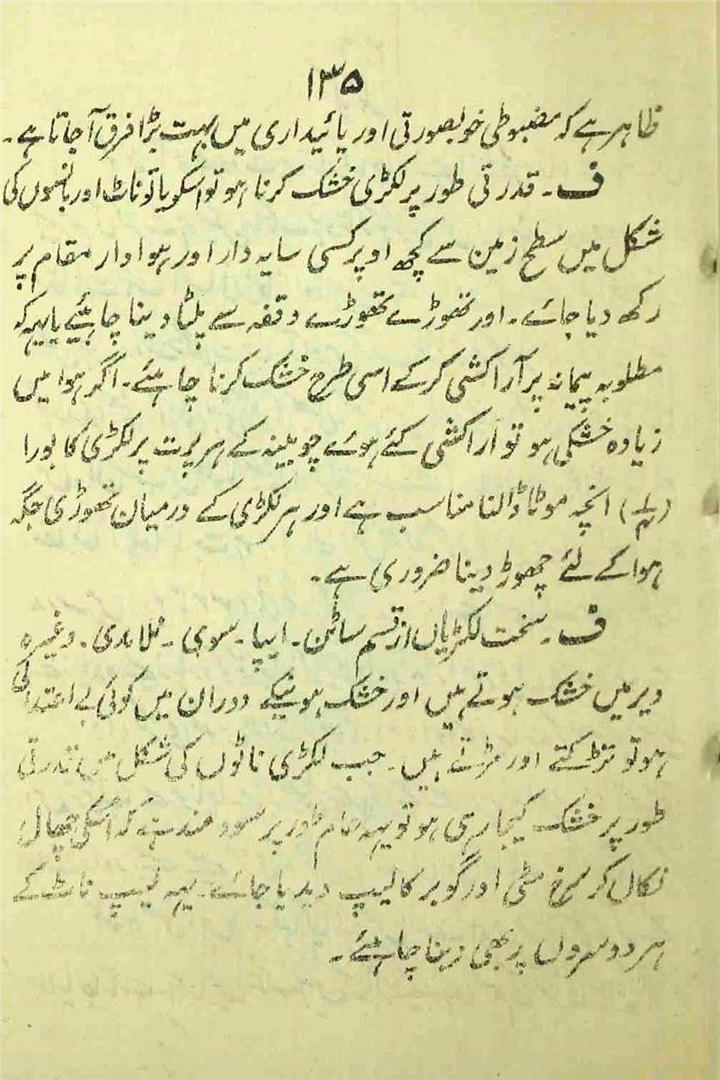 ۱۳۵
ظاہر ہے کہ مضبوطی خوبصورتی اور پائیداری میں بہت بڑا فرق آجاتا ہے۔
ف۔ قدرتی طور پر لکڑی خشک کرنا ہو تو اسکو یا تو ناٹ اور بانسوں کی
شکل میں سطح زمین سے کچھ اوپر کسی سایہ دار اور ہوا دار مقام پر
رکھ دیا جائے۔ اور تھوڑے تھوڑے وقفہ سے پلٹا دینا چاہئیے یا یہہ کہ
مطلوبہ پیمانہ پر آرا کشی کر کے اسی طرح خشک کرنا چاہئے۔ اگر ہوا میں
زیادہ خشکی ہو تو آرا کشی کئے ہوے چوبینہ کے ہر پرت پر لکڑی کا بورا
انچہ موٹا ڈالنا مناسب ہے اور ہر لکڑی کے درمیان تھوڑی جگہ
ہوا کے لئے چھوڑ دینا ضروری ہے۔
ف۔ سخت لکڑیاں از قسم ساٹن۔ ایپا۔ سوہی۔ ملا مدی۔ وغیرہ
دیر میں خشک ہوتے ہیں اور خشک ہونیکے دوران میں کوئی بے اعتدالی
ہو تو تڑکتے اور مڑتے ہیں۔ جب لکڑی ناٹوں کی شکل میں قدرتی
طور پر خشک کیجا رہی ہو تو یہہ عام طور پر سود مند ہے کہ اسکی چھال
نکال کر سرخ مٹی اور گوبر کا لیپ دیدیا جائے۔ یہہ لیپ ناٹ کے
ہر دو سروں پر بھی دینا چاہئے۔